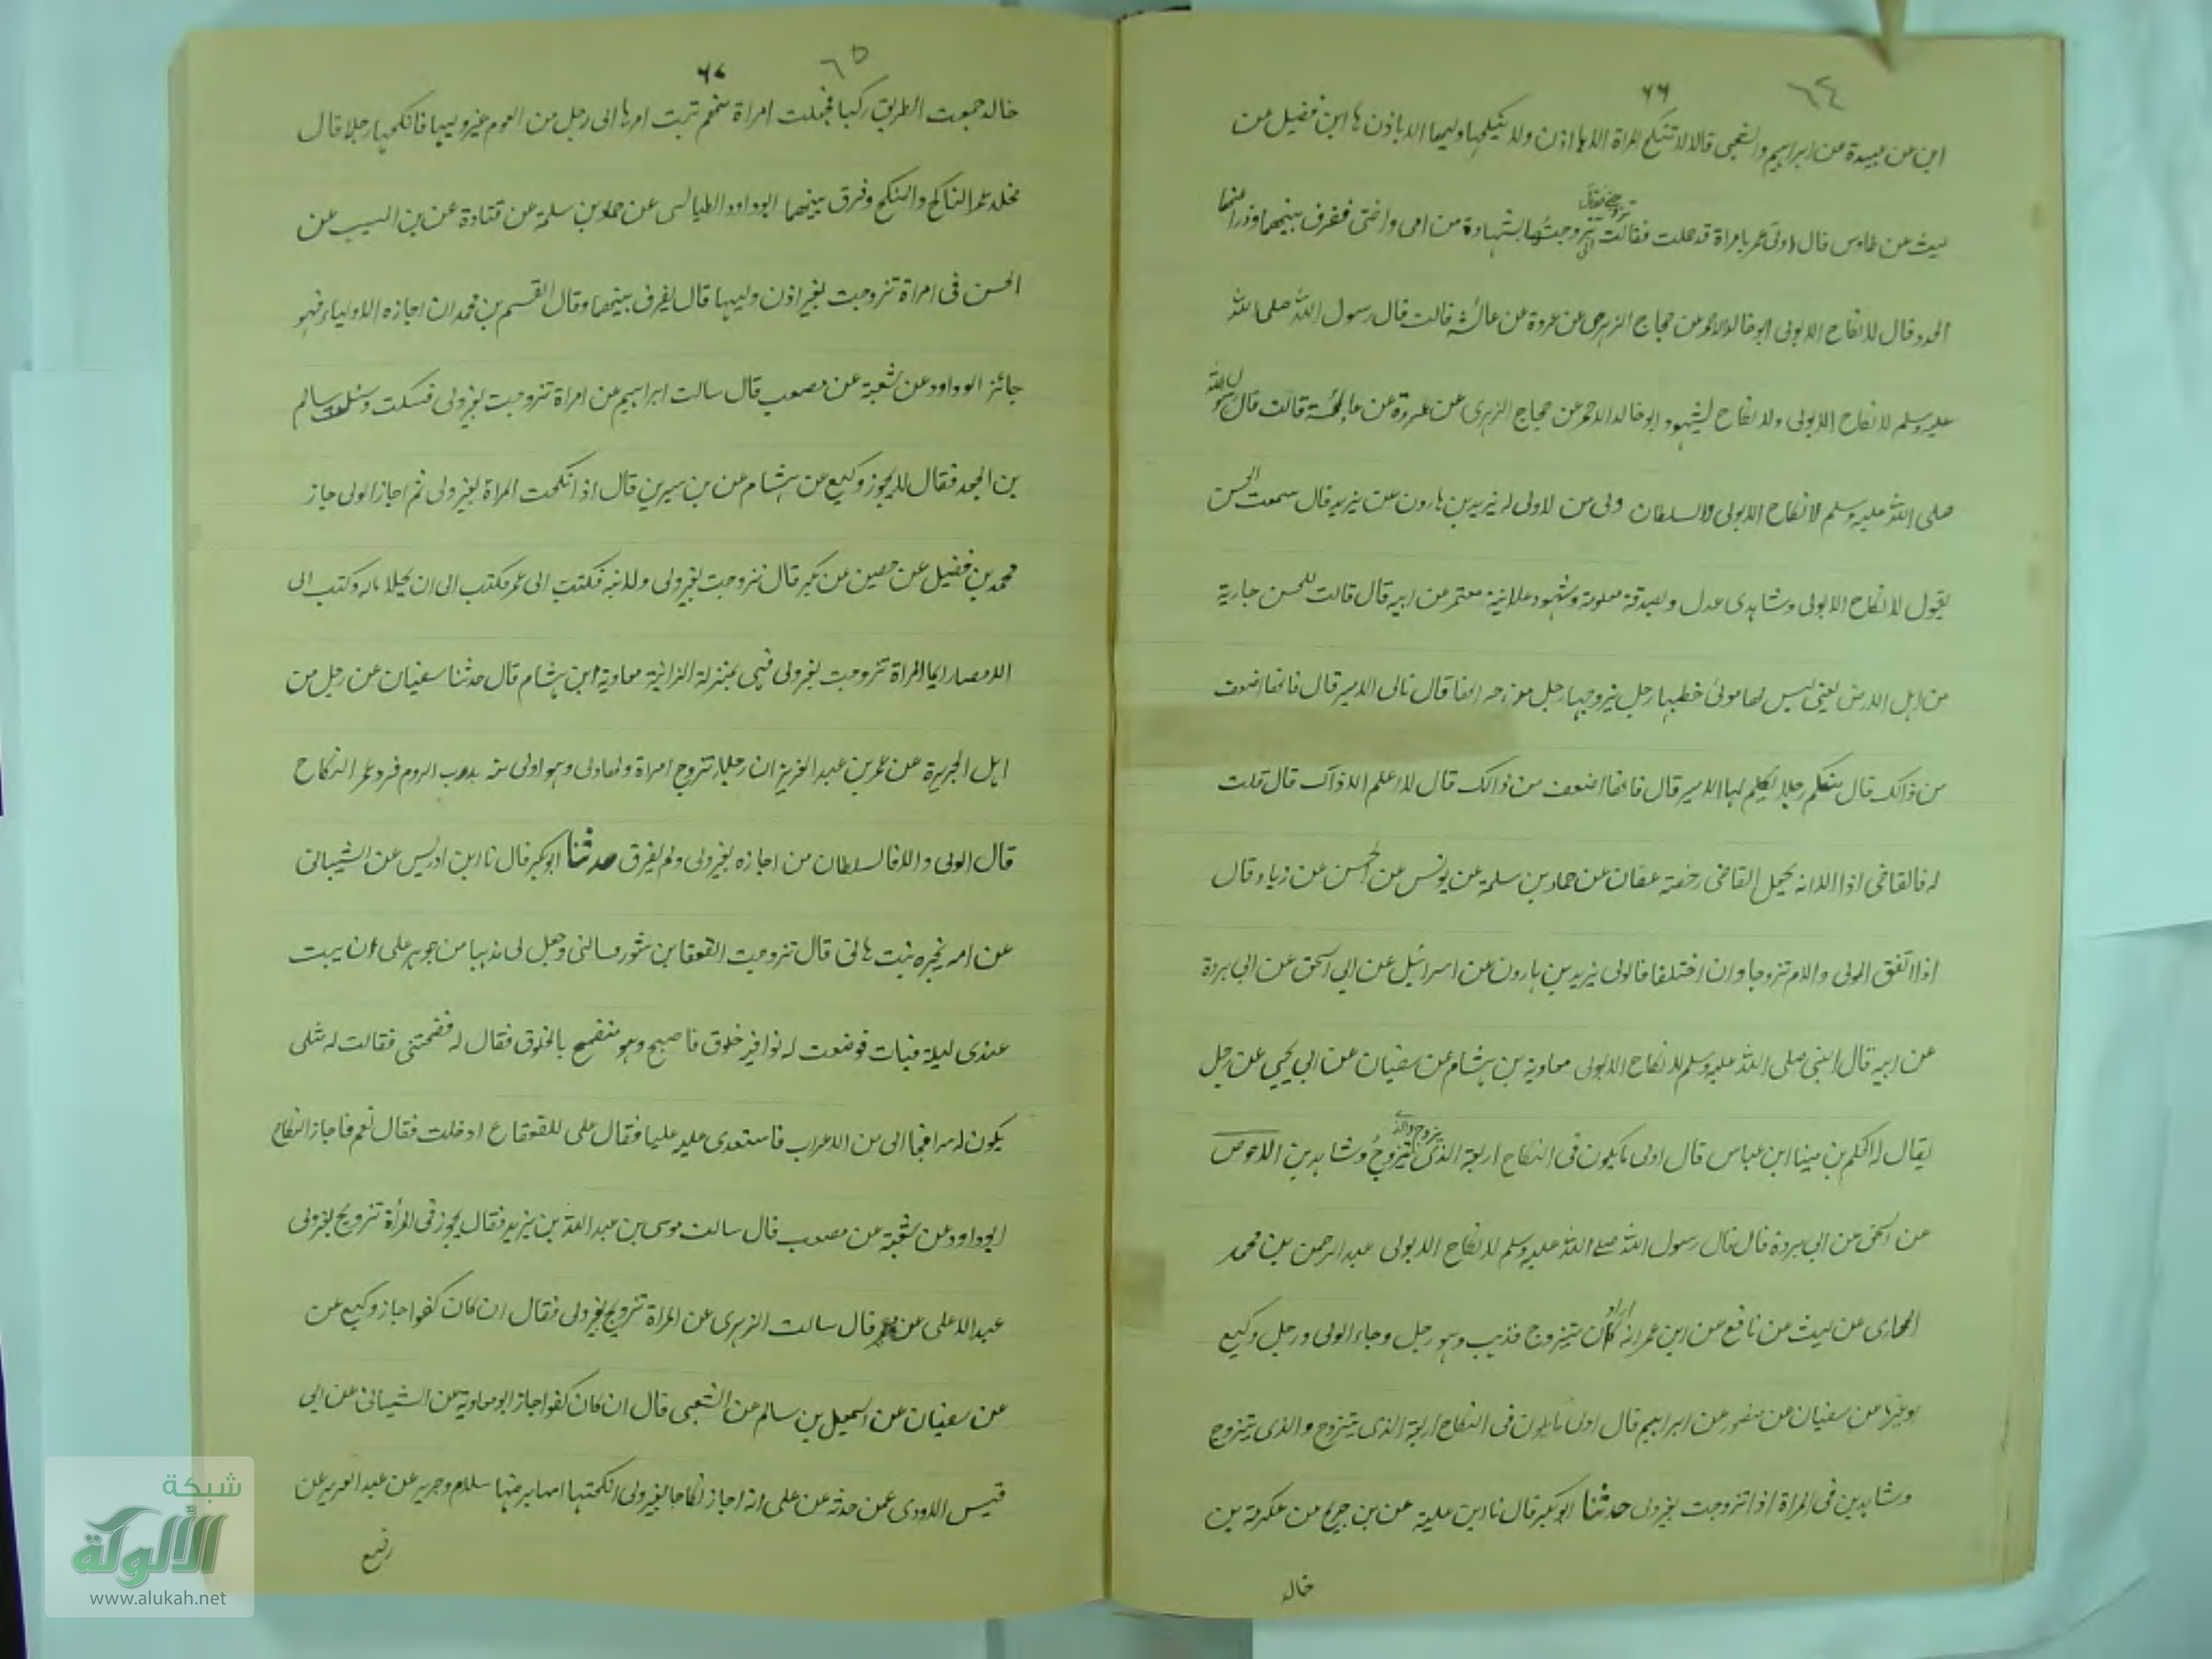 ٦٤
٦٦
ابن من عبيدة من ابراهيم والشعبى قالا لا تنكح المراة الا باذن ولا ينكحها وليها الا باذن ها ابن فضيل عن
ليث عن طاوس قال اوتى عمر بامراة قد حملت فقالت تزوجتها بشهادة من امى واختى ففرق بينهما ودرا عنهما
الحد وقال لا نكاح الا بولى ابو خالد الاحمر عن حجاج الزهرى عن عروة عن عائشة قالت قال رسول الله صلى الله
عليه وسلم لا نكاح الا بولى ولا نكاح ليشهود ابو خالد الاحمر عن حجاج الزهرى عن عروة عن عايشة قالت قال رسول الله
صلى الله عليه وسلم لا نكاح الا بولى والسلطان ولى من لا ولى له يزيد بن هارون عن يزيد قال سمعت الحسن
يقول لا نكاح الا بولى وشاهدى عدل وبصدقة معلومة وشهود علانية معتمر عن ابيه قال قالت للحسن جارية
من اهل الارض يعنى ليس لها مولى خطبها رجل يزوجها رجل قال تاتى الامير قال فانها اضعف
من ذالك قال فتكلم رجلا يكلم لها الامير قال فانها اضعف من ذالك قال لا اعلم الا ذاك قال قلت
له فالقاضى اذا الا انه يحيل القاضى رخصة عفان عن حماد بن سلمة عن يونس عن الحسن عن زياد قال
اذا اتفق الولى والام تزوجا وان اختلفا فالولى يزيد بن هارون عن اسرائيل عن ابى اسحق عن ابى بردة
عن ابيه قال النبى صلى الله عليه وسلم لا نكاح الا بولى معاوية بن هشام عن سفيان عن ابى يحيى عن رجل
يقال له الحكم بن مينا ابن عباس قال اولى ما يكون فى النكاح اربعة الذى يتزوج وشاهدين الاحوص
عن اسحق عن ابى بردة قال قال رسول الله صلى الله عليه وسلم لا نكاح الا بولى عبد الرحمن بن محمد
المحارى عن ليث عن نافع عن ابن عمر انه كان اراد يتزوج فذهب وهو رجل وجاء الولى ورجل وكيع
عن سفيان عن منصور عن ابراهيم قال اولى ما يكون فى النكاح اربعة الذى يتزوج والذى يتزوج
وشاهدين فى المراة اذا تزوجت بغير ولى حدثنا ابو بكر قال نا ابن علية عن بن جريج عن عكرمة بن
خالد
٦٥
٦٧
خالد جمعت الطريق ركبا فجعلت امراة منهم ثيبت امرها الى رجل من القوم غير وليها فانكحها رجلا قال
فجلد عمر الناكح والمنكح وفرق بينهما ابو داود الطيالسى عن حماد بن سلمة عن قتادة عن بن المسيب عن
الحسن فى امراة تزوجت بغير اذن وليها قال يفرق بينهما وقال القسم بن محمد ان اجازه الاولياء فهو
جائز ابو داود عن شعبة عن مصعب قال سالت ابراهيم عن امراة تزوجت بغير ولى فسكت وسئلت سالم
بن الجعد فقال لا يجوز وكيع عن هشام عن بن سيرين قال اذا نكحت المراة بغير ولى ثم اجاز الولى جاز
محمد بن فضيل عن حصين عن بكر قال تزوجت بغير ولى ولا بينة فكتب الى عمر فكتب الى ان يجلد مائة وكتب الى
الامصار ايما امراة تزوجت بغير ولى فهى بمنزلة الزانية معاوية ابن هشام قال حدثنا سفيان عن رجل من
اهل الجزيرة عن عمر بن عبد العزيز ان رجلا تزوج امراة ولها ولى وهو اولى منه بدرب الروم فرد عمر النكاح
قال الولى والا فالسلطان من اجازه بغير ولى ولم يفرق حدثنا ابو بكر قال نا ابن ادريس عن الشيبانى
عن امه بحيرة بنت هانى قال تزوجت القعقاع بن شور فسالنى وجعل لى مذهبا من جوهر على ان يبيت
عندى ليلة فبات فوضعت له تورا فيه خلوق فاصبح وهو متضمخ بالخلوق فقال له فضحتنى فقالت له مثلى
يكون له سرا فجا ابى من الاعراب فاستعدى عليه عليا فقال على للقعقاع ادخلت فقال نعم فاجاز النكاح
ابو داود عن شعبة عن مصعب قال سالت موسى بن عبد الله بن يزيد فقال يجوز فى المرأة تزويج بغير ولى
عبد الاعلى عن معمر قال سالت الزهرى عن المراة تزويج بغير ولى فقال ان كان كفوا جاز وكيع عن
عن سفيان عن اسمعيل بن سالم عن الشعبى قال ان كان كفوا جاز ابو معاوية عن الشيبانى عن ابى
قيس الاودى عمن حدثه عن على انه اجاز نكاحا بغير ولى انكحتها امها برضها سلام وجرير عن عبد العزيز عن
رفيع
شبكة
الألوكة
www.alukah.net